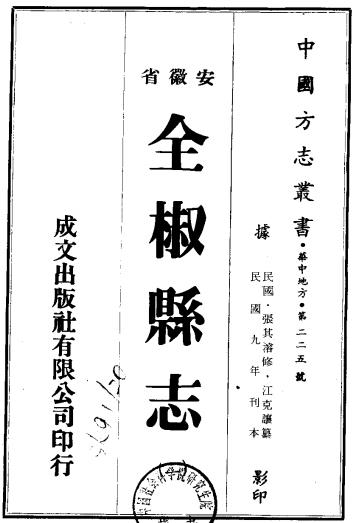 中國方志叢書・華中地方・第二二五號
據
民國・張其濬修・江克讓纂
民國九年刊本
影印
安徽省
全椒縣志
成文出版社有限公司印行
中国社会科学院研究生院